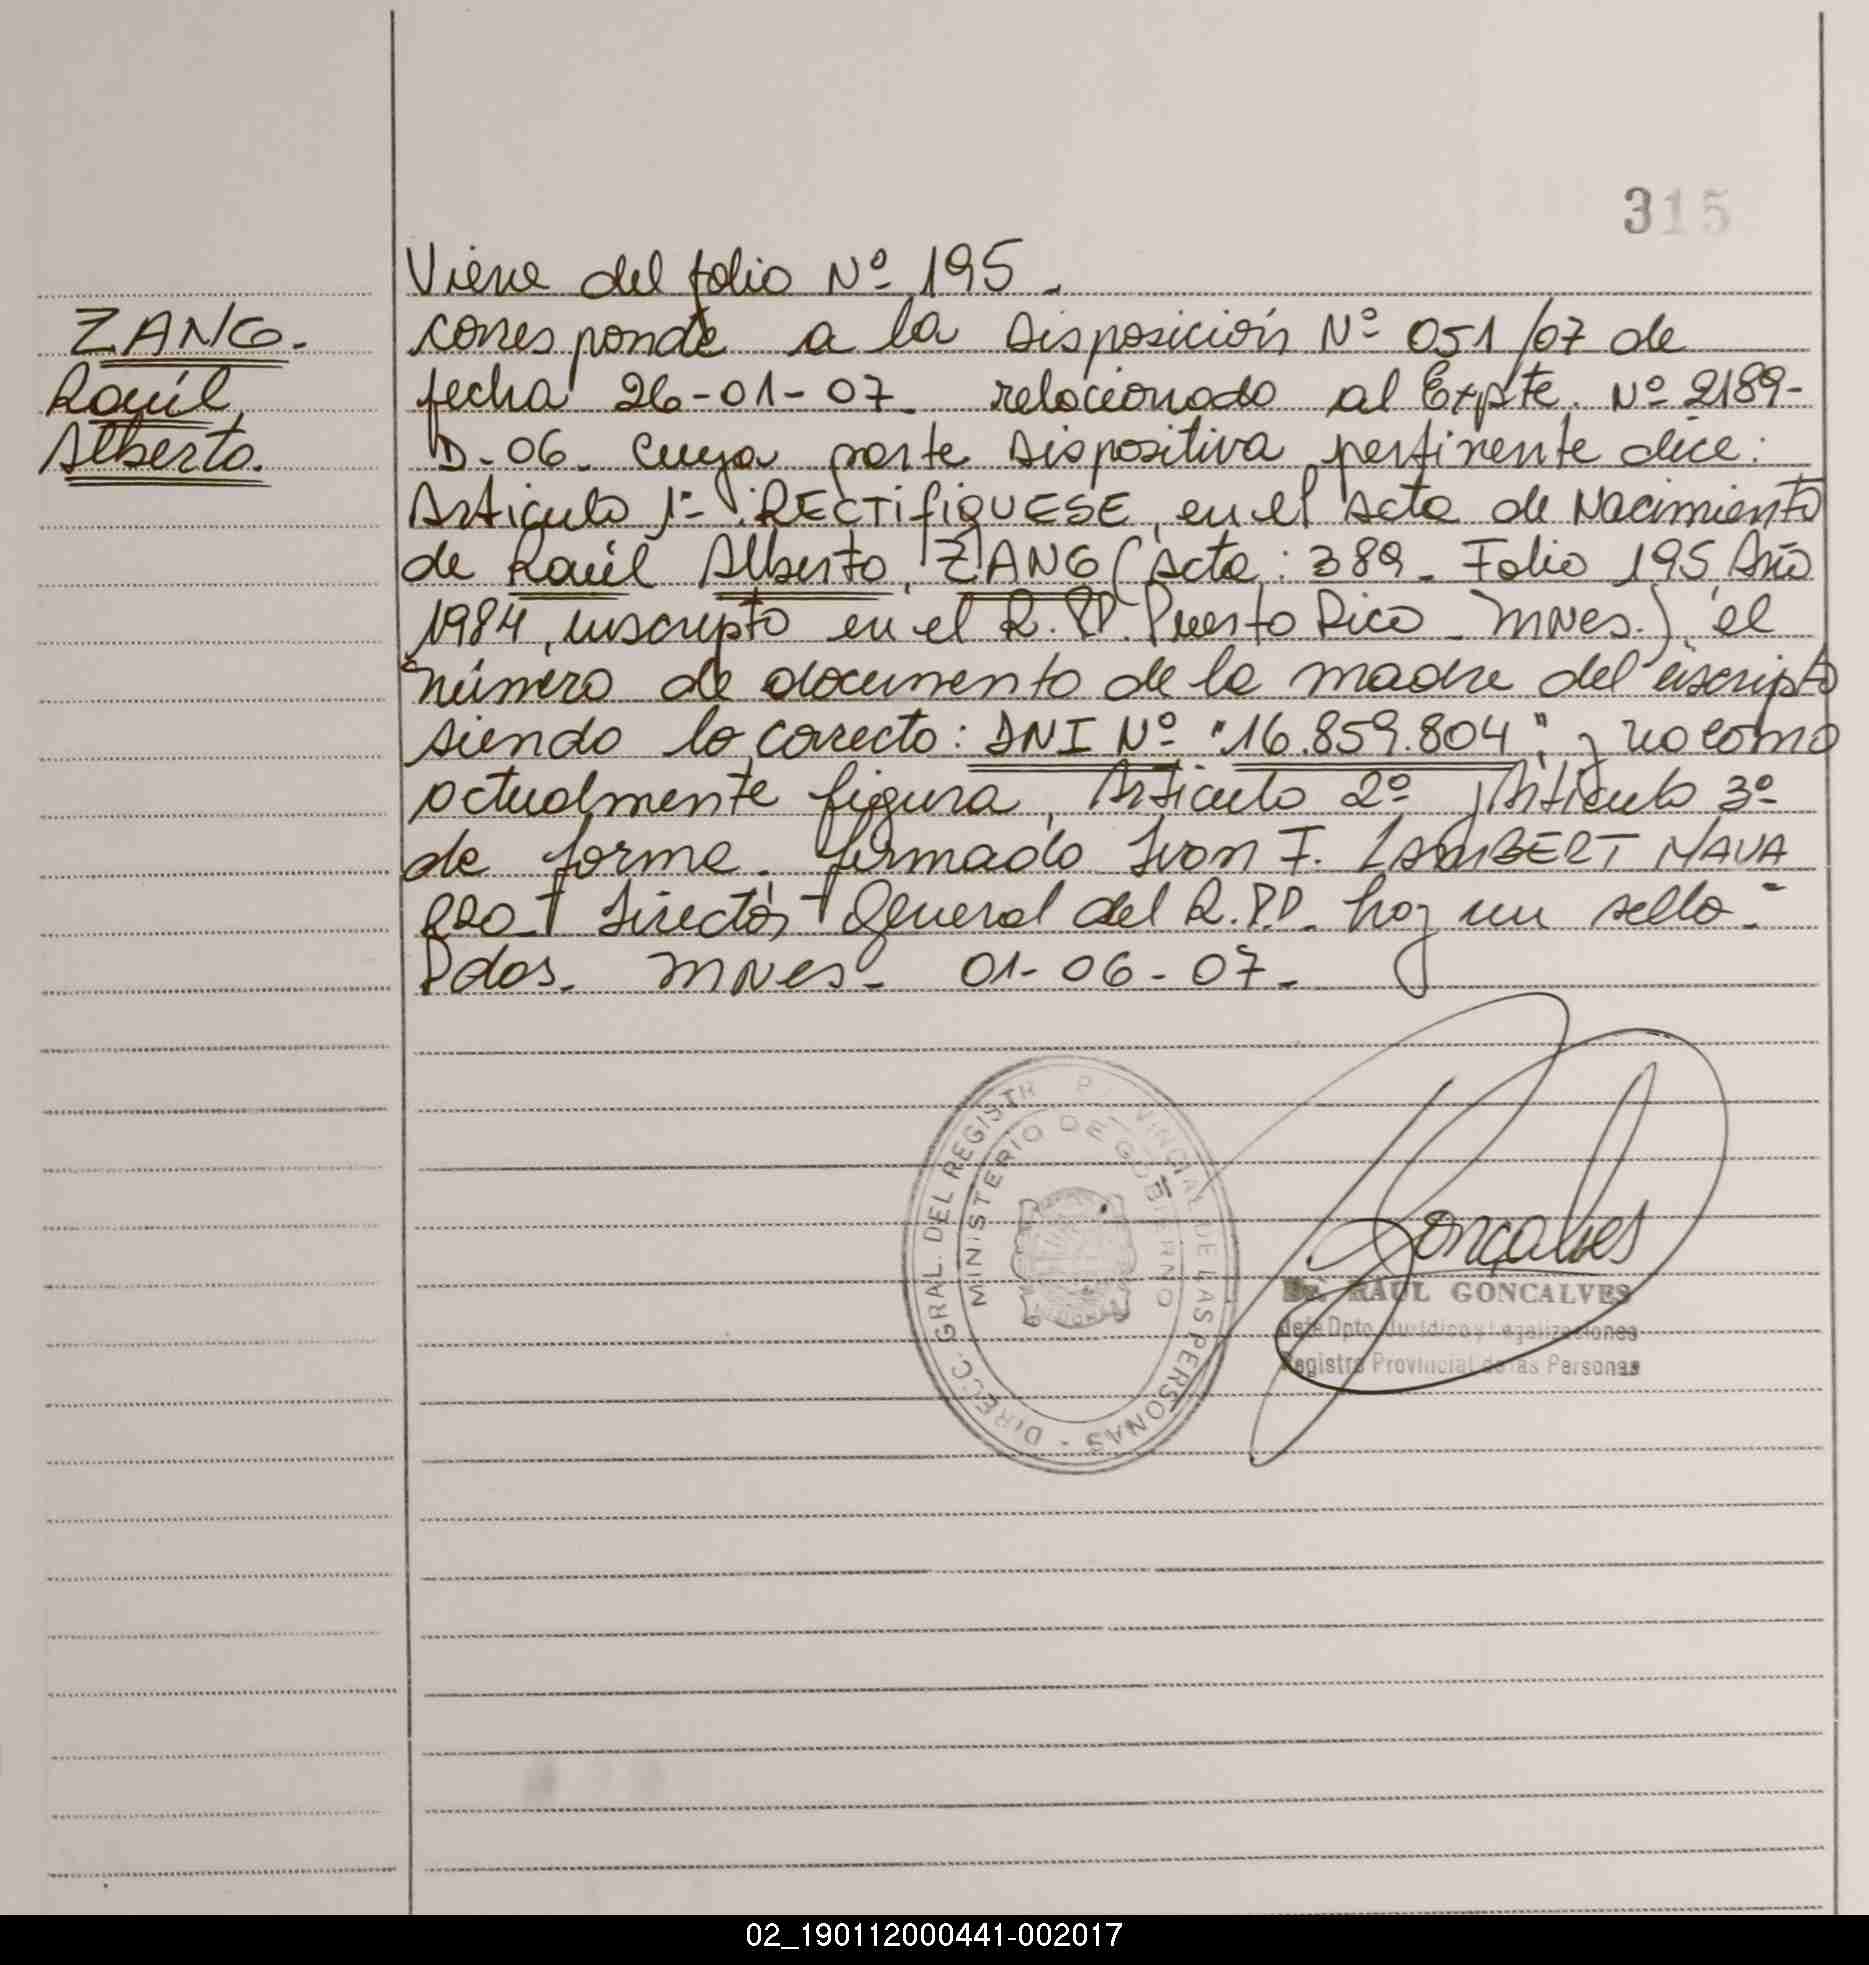 315
Viene del folio Nº 195.
ZANG.
Raúl
Alberto.
corresponde a la Disposición Nº 051/07 de
fecha 26-01-07. relacionado al Expte. Nº 2189-
D-06. Cuya parte Dispositiva pertinente dice:
Articulo 1º: RECTIFIQUESE, en el Acta de Nacimiento
de Raúl Alberto, ZANG (Acta: 389. Folio 195 Año
1984, inscripto en el R.P.P. Puerto Rico - MNes.) el
número de documento de la madre del iscripto
siendo lo correcto: DNI Nº "16.859.804", y no como
actualmente figura, Articulo 2º y Articulo 3º
de forma. firmado Ivon F. LAMBERT NAVA
RRO - Director General del R.P.P. hay un sello.-
Pdas. MNes. 01-06-07.-
DIRECC. GRAL. DEL REGISTR P VINCIAL DE LAS PERSONAS -
MINISTERIO DE GOBIERNO
Goncalves
Dr. RAUL GONCALVES
Jefe Dpto. Jurídico y Legalizaciones
Registro Provincial de las Personas
02_190112000441-002017